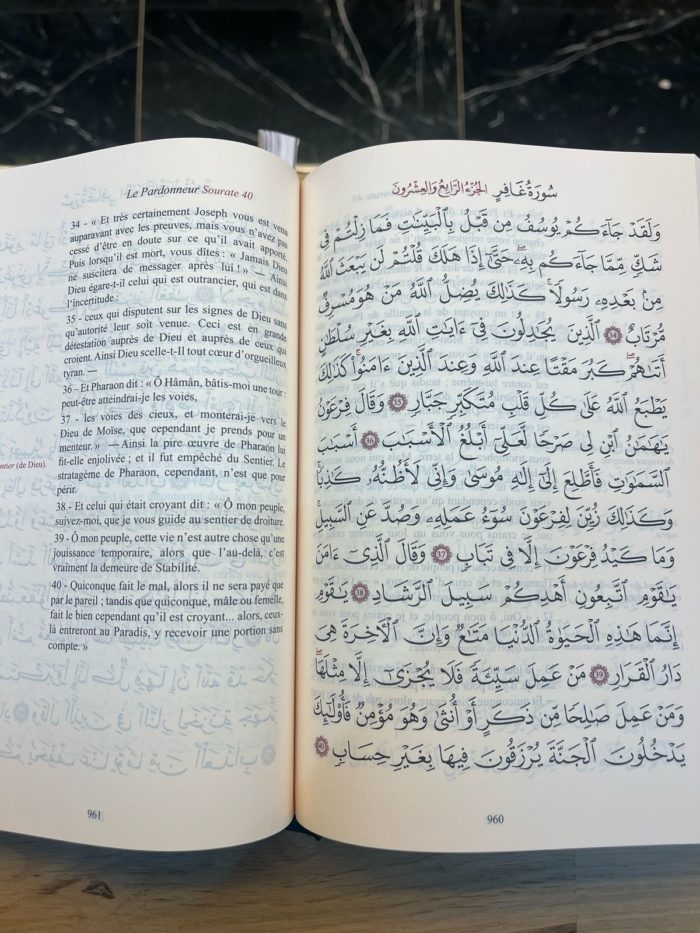 سُورَةُ غَافِرٍ الجُزْءُ الرَّابِعُ وَالعِشْرُونَ
وَلَقَدْ جَآءَكُمْ يُوسُفُ مِن قَبْلُ بِٱلْبَيِّنَٰتِ فَمَا زِلْتُمْ فِى
شَكٍّ مِّمَّا جَآءَكُم بِهِۦ ۖ حَتَّىٰٓ إِذَا هَلَكَ قُلْتُمْ لَن يَبْعَثَ ٱللَّهُ
مِنۢ بَعْدِهِۦ رَسُولًا ۚ كَذَٰلِكَ يُضِلُّ ٱللَّهُ مَنْ هُوَ مُسْرِفٌ
مُّرْتَابٌ 34 ٱلَّذِينَ يُجَٰدِلُونَ فِىٓ ءَايَٰتِ ٱللَّهِ بِغَيْرِ سُلْطَٰنٍ
أَتَىٰهُمْ ۖ كَبُرَ مَقْتًا عِندَ ٱللَّهِ وَعِندَ ٱلَّذِينَ ءَامَنُوا۟ ۚ كَذَٰلِكَ
يَطْبَعُ ٱللَّهُ عَلَىٰ كُلِّ قَلْبِ مُتَكَبِّرٍ جَبَّارٍ 35 وَقَالَ فِرْعَوْنُ
يَٰهَٰمَٰنُ ٱبْنِ لِى صَرْحًا لَّعَلِّىٓ أَبْلُغُ ٱلْأَسْبَٰبَ 36 أَسْبَٰبَ
ٱلسَّمَٰوَٰتِ فَأَطَّلِعَ إِلَىٰٓ إِلَٰهِ مُوسَىٰ وَإِنِّى لَأَظُنُّهُۥ كَٰذِبًا ۚ
وَكَذَٰلِكَ زُيِّنَ لِفِرْعَوْنَ سُوٓءُ عَمَلِهِۦ وَصُدَّ عَنِ ٱلسَّبِيلِ ۚ
وَمَا كَيْدُ فِرْعَوْنَ إِلَّا فِى تَبَابٍ 37 وَقَالَ ٱلَّذِىٓ ءَامَنَ
يَٰقَوْمِ ٱتَّبِعُونِ أَهْدِكُمْ سَبِيلَ ٱلرَّشَادِ 38 يَٰقَوْمِ
إِنَّمَا هَٰذِهِ ٱلْحَيَوٰةُ ٱلدُّنْيَا مَتَٰعٌ وَإِنَّ ٱلْءَاخِرَةَ هِىَ
دَارُ ٱلْقَرَارِ 39 مَنْ عَمِلَ سَيِّئَةً فَلَا يُجْزَىٰٓ إِلَّا مِثْلَهَا ۖ
وَمَنْ عَمِلَ صَٰلِحًا مِّن ذَكَرٍ أَوْ أُنثَىٰ وَهُوَ مُؤْمِنٌ فَأُو۟لَٰٓئِكَ
يَدْخُلُونَ ٱلْجَنَّةَ يُرْزَقُونَ فِيهَا بِغَيْرِ حِسَابٍ 40
960
Le Pardonneur Sourate 40
34 - « Et très certainement Joseph vous est venu
auparavant avec les preuves, mais vous n'avez pas
cessé d'être en doute sur ce qu'il avait apporté.
Puis lorsqu'il est mort, vous dîtes : « Jamais Dieu
ne suscitera de messager après lui ! » — Ainsi
Dieu égare-t-il celui qui est outrancier, qui est dans
l'incertitude :
35 - ceux qui disputent sur les signes de Dieu sans
qu'autorité leur soit venue. Ceci est en grande
détestation auprès de Dieu et auprès de ceux qui
croient. Ainsi Dieu scelle-t-Il tout cœur d'orgueilleux
tyran. —
36 – Et Pharaon dit : « Ô Hâmân, bâtis-moi une tour :
peut-être atteindrai-je les voies,
37 - les voies des cieux, et monterai-je vers le
Dieu de Moïse, que cependant je prends pour un
menteur. » — Ainsi la pire œuvre de Pharaon lui
fit-elle enjolivée ; et il fut empêché du Sentier. Le
stratagème de Pharaon, cependant, n'est que pour
périr.
38 - Et celui qui était croyant dit : « Ô mon peuple,
suivez-moi, que je vous guide au sentier de droiture.
39 - Ô mon peuple, cette vie n'est autre chose qu'une
jouissance temporaire, alors que l'au-delà, c'est
vraiment la demeure de Stabilité.
40 - Quiconque fait le mal, alors il ne sera payé que
par le pareil ; tandis que quiconque, mâle ou femelle,
fait le bien cependant qu'il est croyant... alors, ceux-
là entreront au Paradis, y recevoir une portion sans
compte. »
(de Dieu).
961